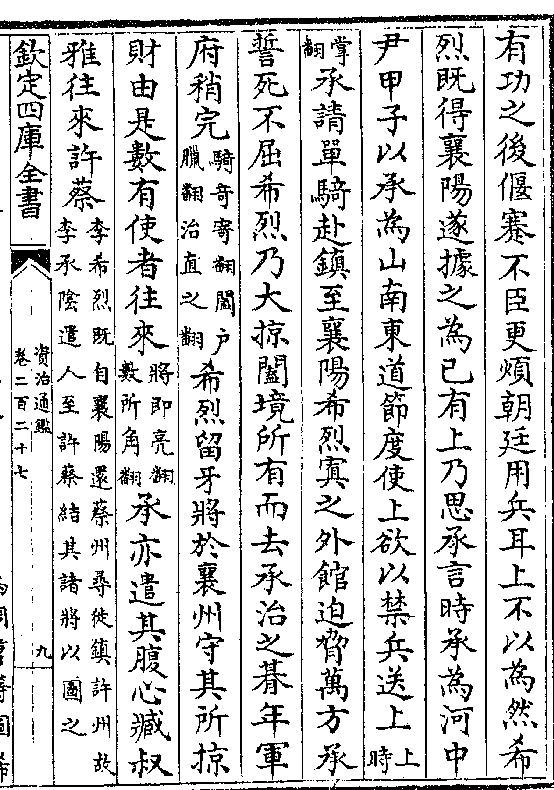 有功之後偃蹇不臣更煩朝廷用兵耳上不以為然希
烈既得襄陽遂據之為已有上乃思承言時承為河中
尹甲子以承為山南東道節度使上欲以禁兵送上上時
掌翻承請單騎赴鎮至襄陽希烈寘之外館迫脅萬方承
誓死不屈希烈乃大掠闔境所有而去承治之朞年軍
府稍完騎奇寄翻闔户臘翻治直之翻希烈留牙將於襄州守其所掠
財由是數有使者往來將即亮翻數所角翻承亦遣其腹心臧叔
雅往來許蔡李希烈既自襄陽還蔡州尋徙鎮許州故李承隂遣人至許蔡結其諸將以圖之
欽定四庫全書
資治通鑑
卷二百二十七
九